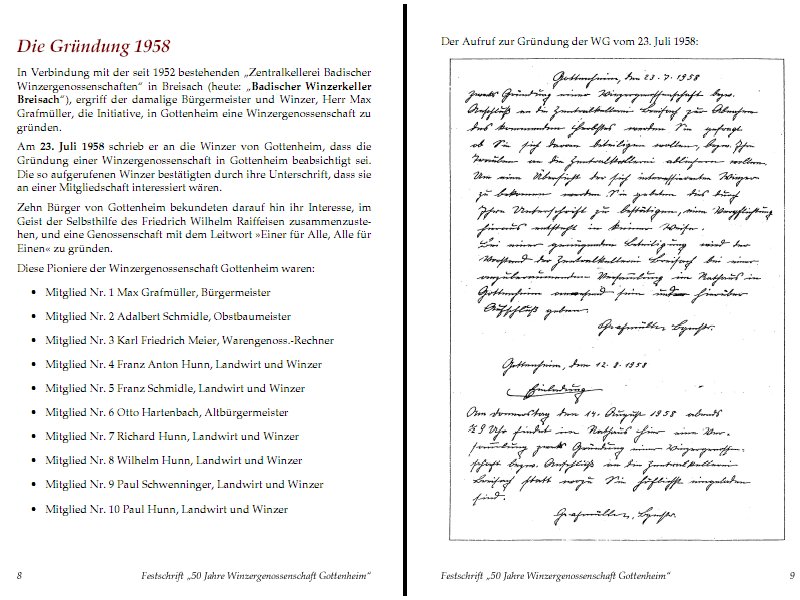 Die Gründung 1958
In Verbindung mit der seit 1952 bestehenden „Zentralkellerei Badischer
Winzergenossenschaften“ in Breisach (heute: „Badischer Winzerkeller
Breisach“), ergriff der damalige Bürgermeister und Winzer, Herr Max
Grafmüller, die Initiative, in Gottenheim eine Winzergenossenschaft zu
gründen.
Am 23. Juli 1958 schrieb er an die Winzer von Gottenheim, dass die
Gründung einer Winzergenossenschaft in Gottenheim beabsichtigt sei.
Die so aufgerufenen Winzer bestätigten durch ihre Unterschrift, dass sie
an einer Mitgliedschaft interessiert wären.
Zehn Bürger von Gottenheim bekundeten darauf hin ihr Interesse, im
Geist der Selbsthilfe des Friedrich Wilhelm Raiffeisen zusammenzuste-
hen, und eine Genossenschaft mit dem Leitwort »Einer für Alle, Alle für
Einen« zu gründen.
Diese Pioniere der Winzergenossenschaft Gottenheim waren:
• Mitglied Nr. 1 Max Grafmüller, Bürgermeister
• Mitglied Nr. 2 Adalbert Schmidle, Obstbaumeister
• Mitglied Nr. 3 Karl Friedrich Meier, Warengenoss.-Rechner
• Mitglied Nr. 4 Franz Anton Hunn, Landwirt und Winzer
• Mitglied Nr. 5 Franz Schmidle, Landwirt und Winzer
• Mitglied Nr. 6 Otto Hartenbach, Altbürgermeister
• Mitglied Nr. 7 Richard Hunn, Landwirt und Winzer
• Mitglied Nr. 8 Wilhelm Hunn, Landwirt und Winzer
• Mitglied Nr. 9 Paul Schwenninger, Landwirt und Winzer
• Mitglied Nr. 10 Paul Hunn, Landwirt und Winzer
8 Festschrift „50 Jahre Winzergenossenschaft Gottenheim“
Der Aufruf zur Gründung der WG vom 23. Juli 1958:
Gottenheim, den 23.7.1958
Zwecks Gründung einer Winzergenossenschaft bezw.
Anschluß an die Zentralkellerei Breisach zur Abnahme
des kommenden Herbstes werden Sie gefragt
ob Sie sich daran beteiligen wollen, bezw. Ihre
Trauben an die Zentralkellerei abliefern wollen.
Um eine Übersicht der sich interessierenden Winzer
zu bekommen werden Sie gebeten dies durch
Ihre Unterschrift zu bestätigen, eine Verpflichtung
hieraus entsteht in keiner Weise.
Bei einer genügenden Beteiligung wird der
Vorstand der Zentralkellerei Breisach bei einer
Versammlung im Rathaus in
Gottenheim anwesend sein und hierüber
Aufschluß geben.
Grafmüller, Bgmstr.
Gottenheim, den 12.8.1958
Einladung
Am Donnerstag den 14. August 1958 abends
½9 Uhr findet im Rathaus hier eine Ver-
sammlung zwecks Gründung einer Winzergenossen-
schaft bezw. Anschluß an die Zentralkellerei
Breisach statt wozu Sie höflichst eingeladen
sind.
Grafmüller, Bgmstr.
Festschrift „50 Jahre Winzergenossenschaft Gottenheim“ 9